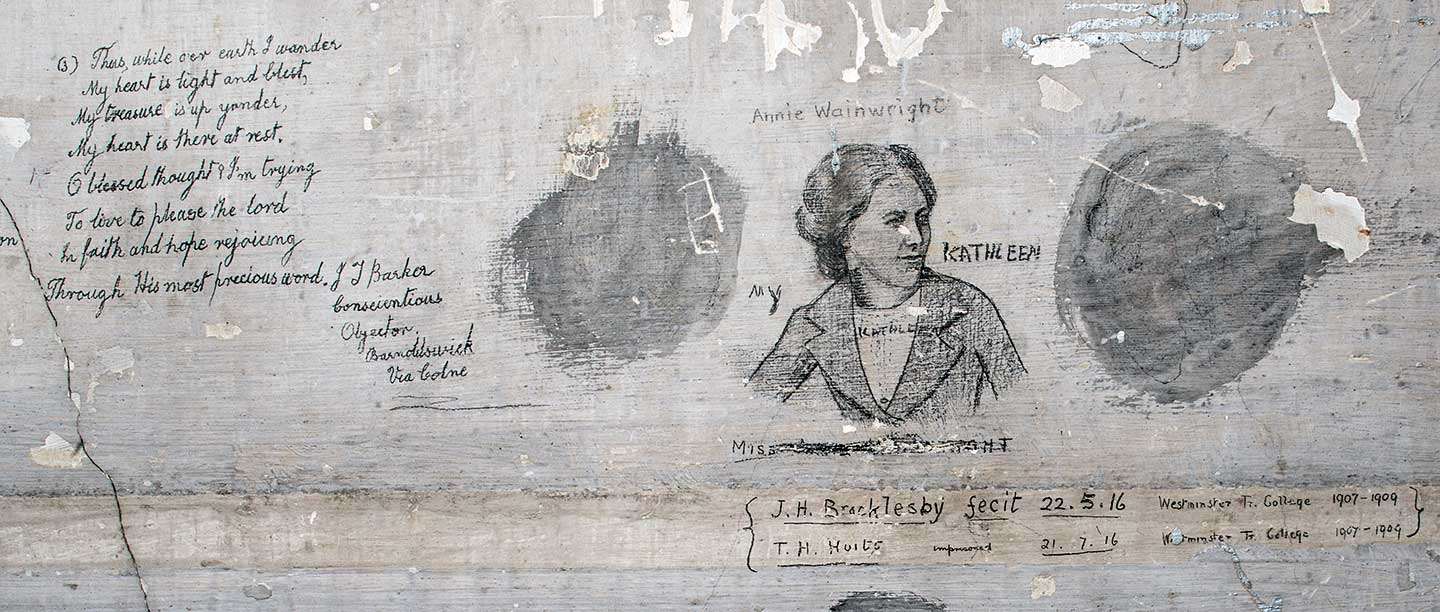 (3) Thus, while o'er earth I wander
My heart is light and blest,
My treasure is up yonder,
My heart is there at rest.
O blessed thought! I'm trying
To live to please the lord
In faith and hope rejoicing
Through His most precious word.
J J Barker
Conscientious
Objector.
Barnoldswick
Via Colne
Annie Wainwright
KATHLEEN
MY
KATHLEEN
MISS
J. H. Brocklesby fecit 22.5.16 Westminster Tr. College 1907-1909
T. H. 21.7.16 Westminster Tr. College 1907-1909